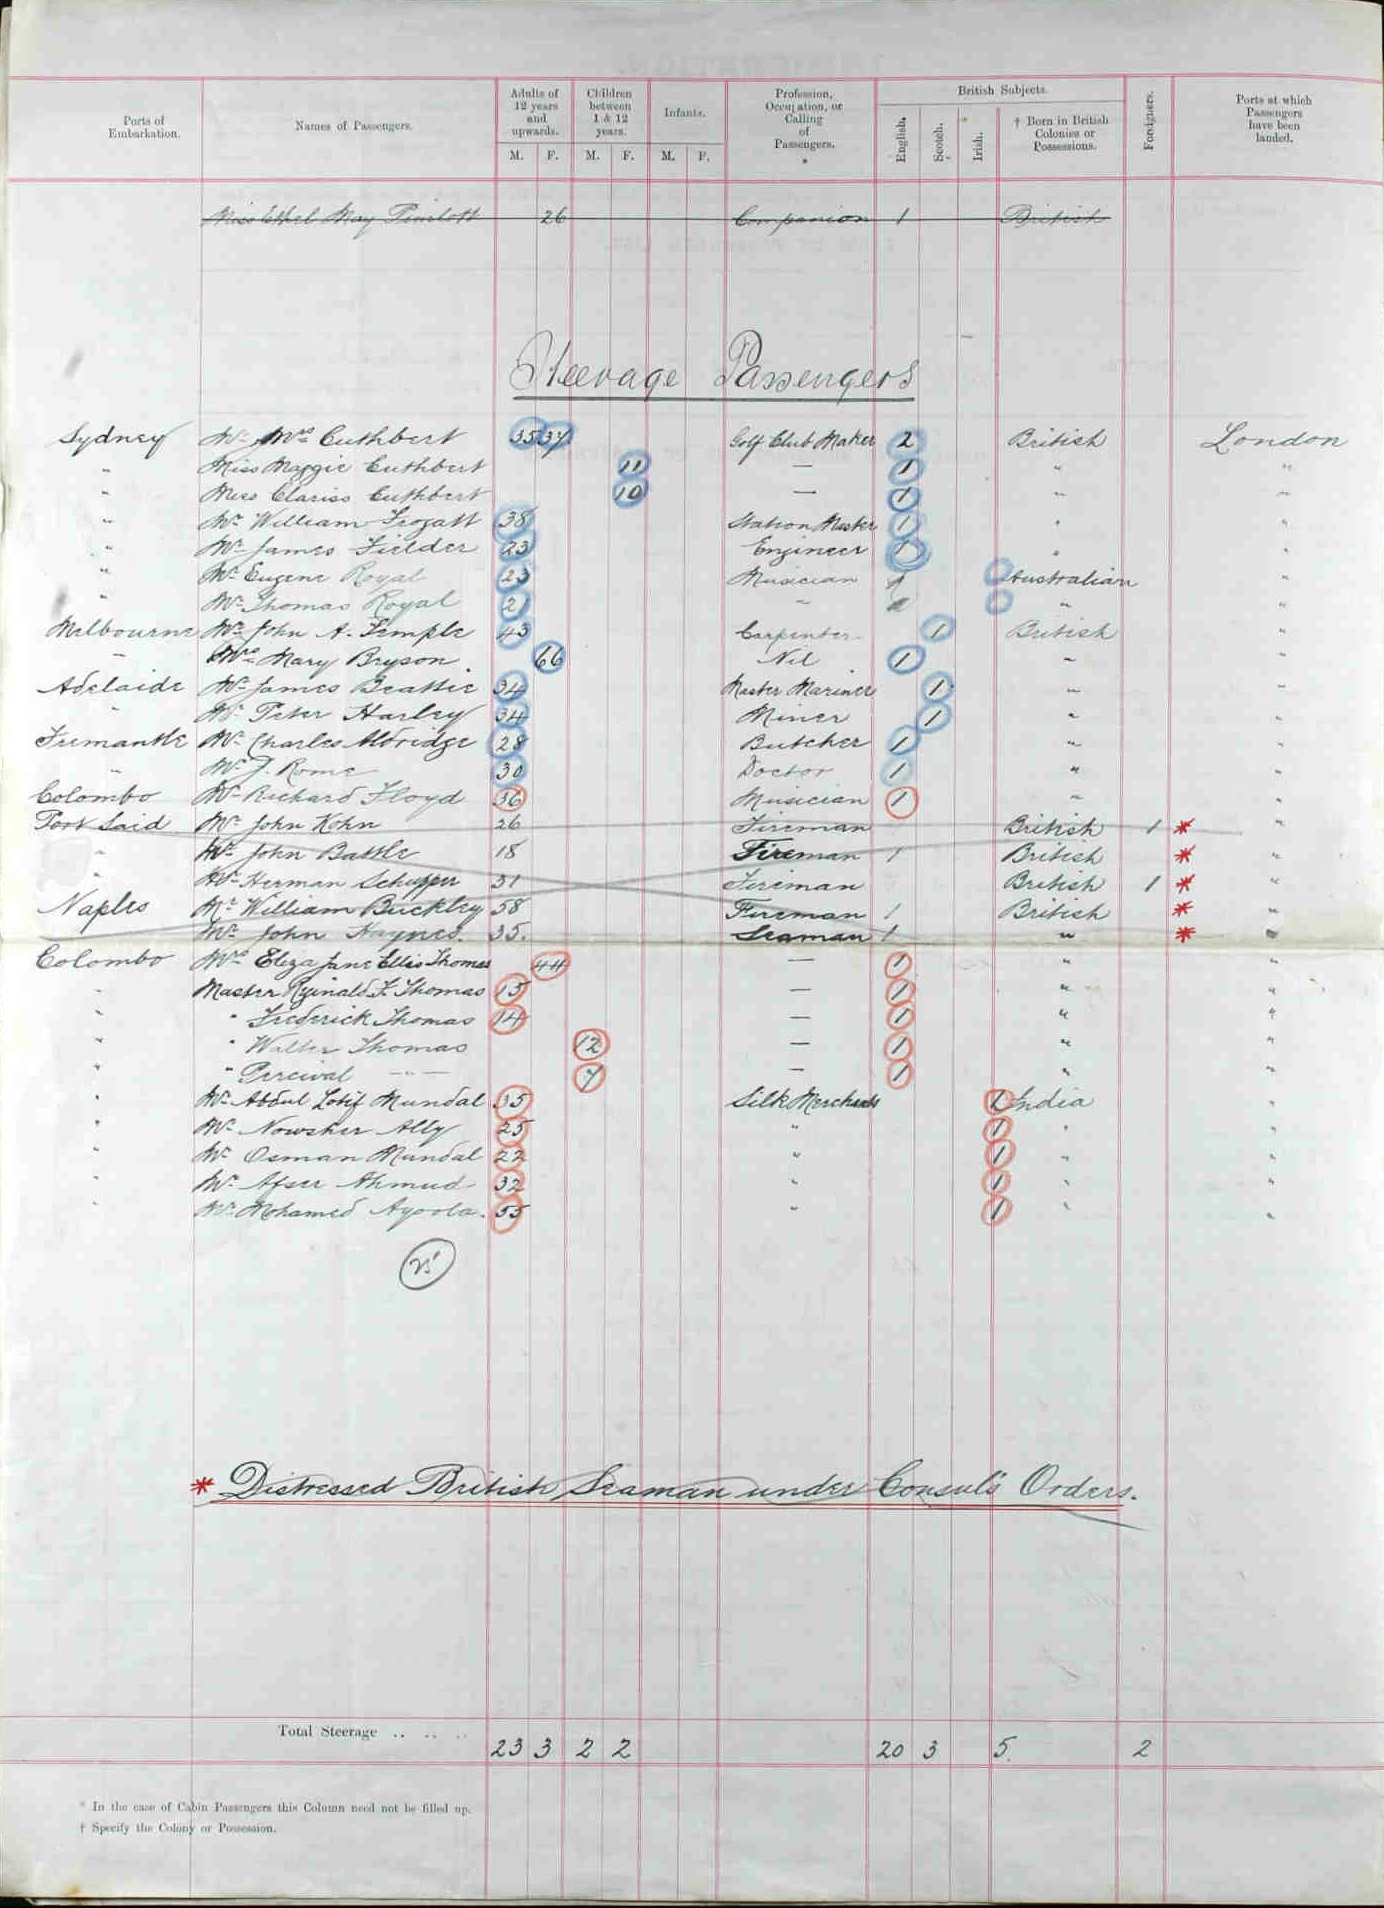 Ports of Embarkation. Names of Passengers. Adults of 12 years and upwards. Children between 1 & 12 years. Infants. Profession, Occupation, or Calling of Passengers. * British Subjects. Foreigners. Ports at which Passengers have been landed.
M. F. M. F. M. F. English. Scotch. Irish. † Born in British Colonies or Possessions.
Miss Ethel May 26 Companion 1 British
Steerage Passengers
Sydney Mr Mrs Cuthbert 35 37 Golf Club Maker 2 British London
" Miss Maggie Cuthbert 11 — 1 " "
" Miss Clariss Cuthbert 10 — 1 " "
" Mr William Frogatt 38 Station Master 1 " "
" Mr James Fielder 23 Engineer 1 " "
" Mr Eugene Royal 23 Musician 1 Australian "
" Mr Thomas Royal 21 " " "
Melbourne Mr John A. Temple 43 Carpenter 1 British "
" Mrs Mary Bryson 66 Nil 1 " "
Adelaide Mr James Beattie 34 Master Mariner 1 " "
" Mr Peter Harley 34 Miner 1 " "
Fremantle Mr Charles Aldridge 28 Butcher 1 " "
" Mr J. Rome 30 Doctor 1 " "
Colombo Mr Richard Floyd 36 Musician 1 " "
Port Said Mr John Kohn 26 Fireman British 1 * "
" Mr John Battle 18 Fireman 1 British * "
" Mr Herman Schupper 31 Fireman British 1 * "
Naples Mr William Buckley 58 Fireman 1 British * "
Mr John Haynes. 35. Seaman 1 " * "
Colombo Mrs Eliza Jane Ellis Thomas 44 — 1 " "
" Master Reginald F. Thomas 15 — 1 " "
" " Frederick Thomas 14 — 1 " "
" " Walter Thomas 12 — 1 " "
" " Percival —"— 7 — 1 " "
" Mr Abdul Lotif Mundal 35 Silk Merchants 1 India "
" Mr Nowsher Ally 25 " 1 " "
" Mr Osman Mundal 22 " 1 " "
" Mr Afser Ahmud 32 " 1 " "
" Mr Mohamed Ayoola. 55 " 1 " "
25
* Distressed British Seaman under Consul's Orders.
Total Steerage .. .. .. 23 3 2 2 20 3 5. 2
* In the case of Cabin Passengers this Column need not be filled up.
† Specify the Colony or Possession.